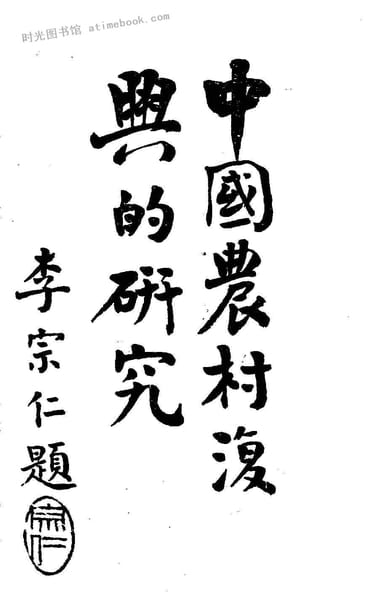 时光图书馆 atimebook.com
中國農村復
興的研究
李宗仁題